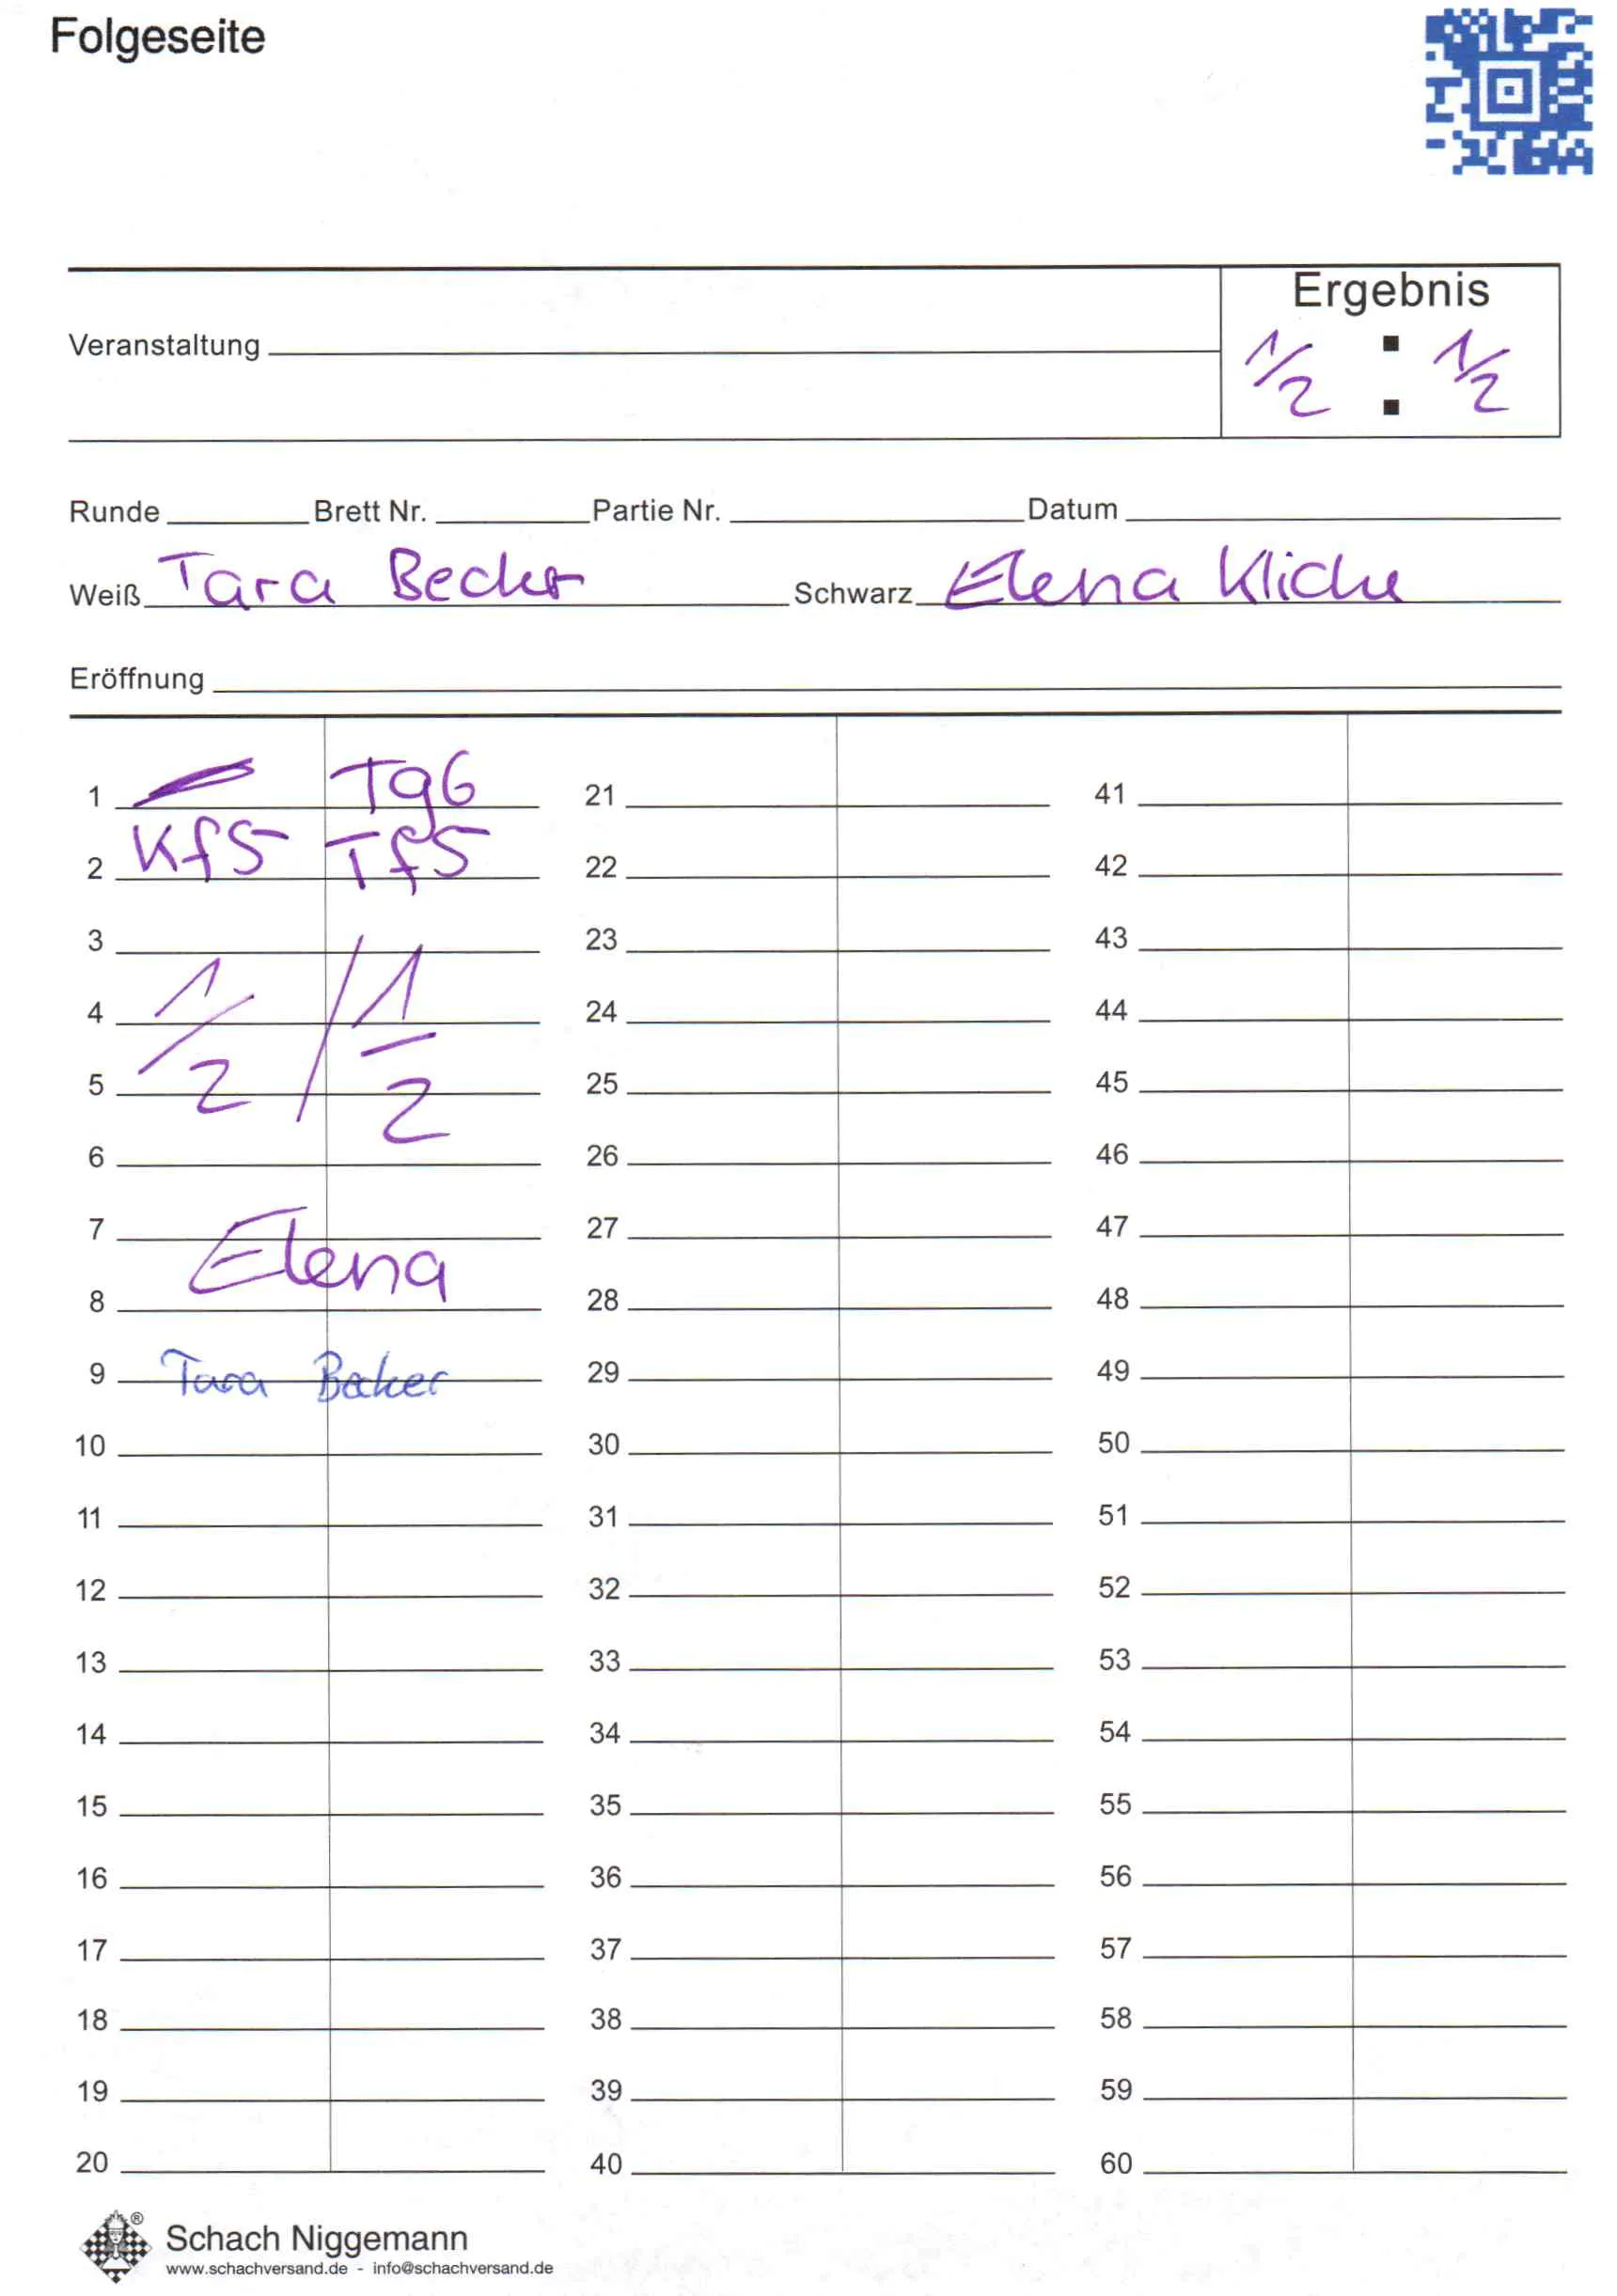 Folgeseite
Ergebnis
Veranstaltung
1/2 : 1/2
Runde Brett Nr. Partie Nr. Datum
Weiß Tara Becker Schwarz Elena Kliche
Eröffnung
1 Tg6 21 41
2 Kf5 Tf5 22 42
3 23 43
4 24 44
1/2 / 1/2
5 25 45
6 26 46
7 27 47
Elena
8 28 48
9 Tara Becker 29 49
10 30 50
11 31 51
12 32 52
13 33 53
14 34 54
15 35 55
16 36 56
17 37 57
18 38 58
19 39 59
20 40 60
Schach Niggemann ®
www.schachversand.de - info@schachversand.de